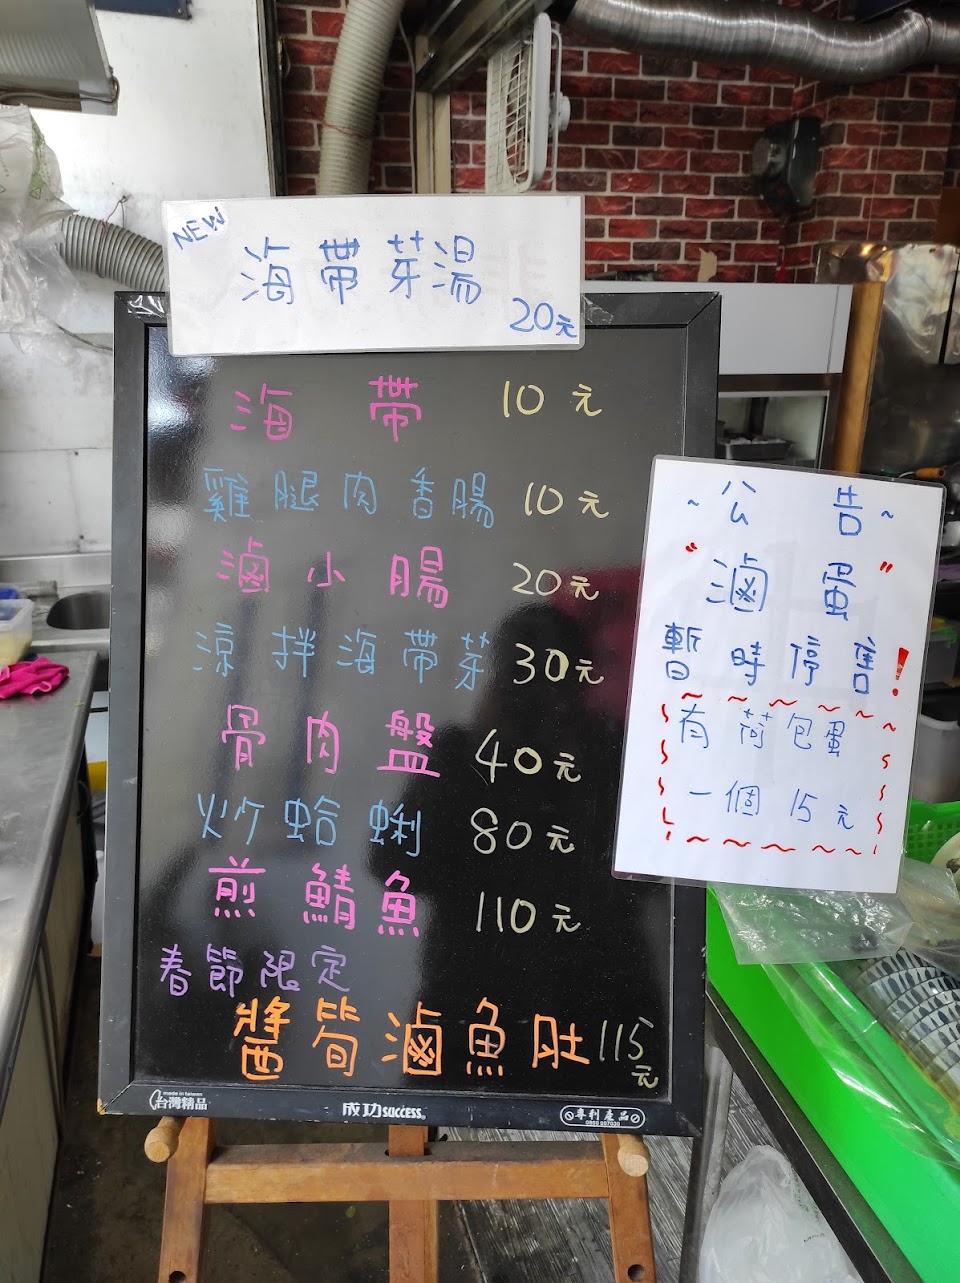 NEW
海帶芽湯
20元
海帶 10元
雞腿肉香腸 10元
滷小腸 20元
涼拌海帶芽 30元
骨肉盤 40元
炒蛤蜊 80元
煎鯖魚 110元
春節限定
醬筍滷魚肚 115元
made in taiwan
台灣精品
成功SUCCESS
專利產品
0800 007030
~公告~
"滷蛋"
暫時停售!
有荷包蛋
一個 15元